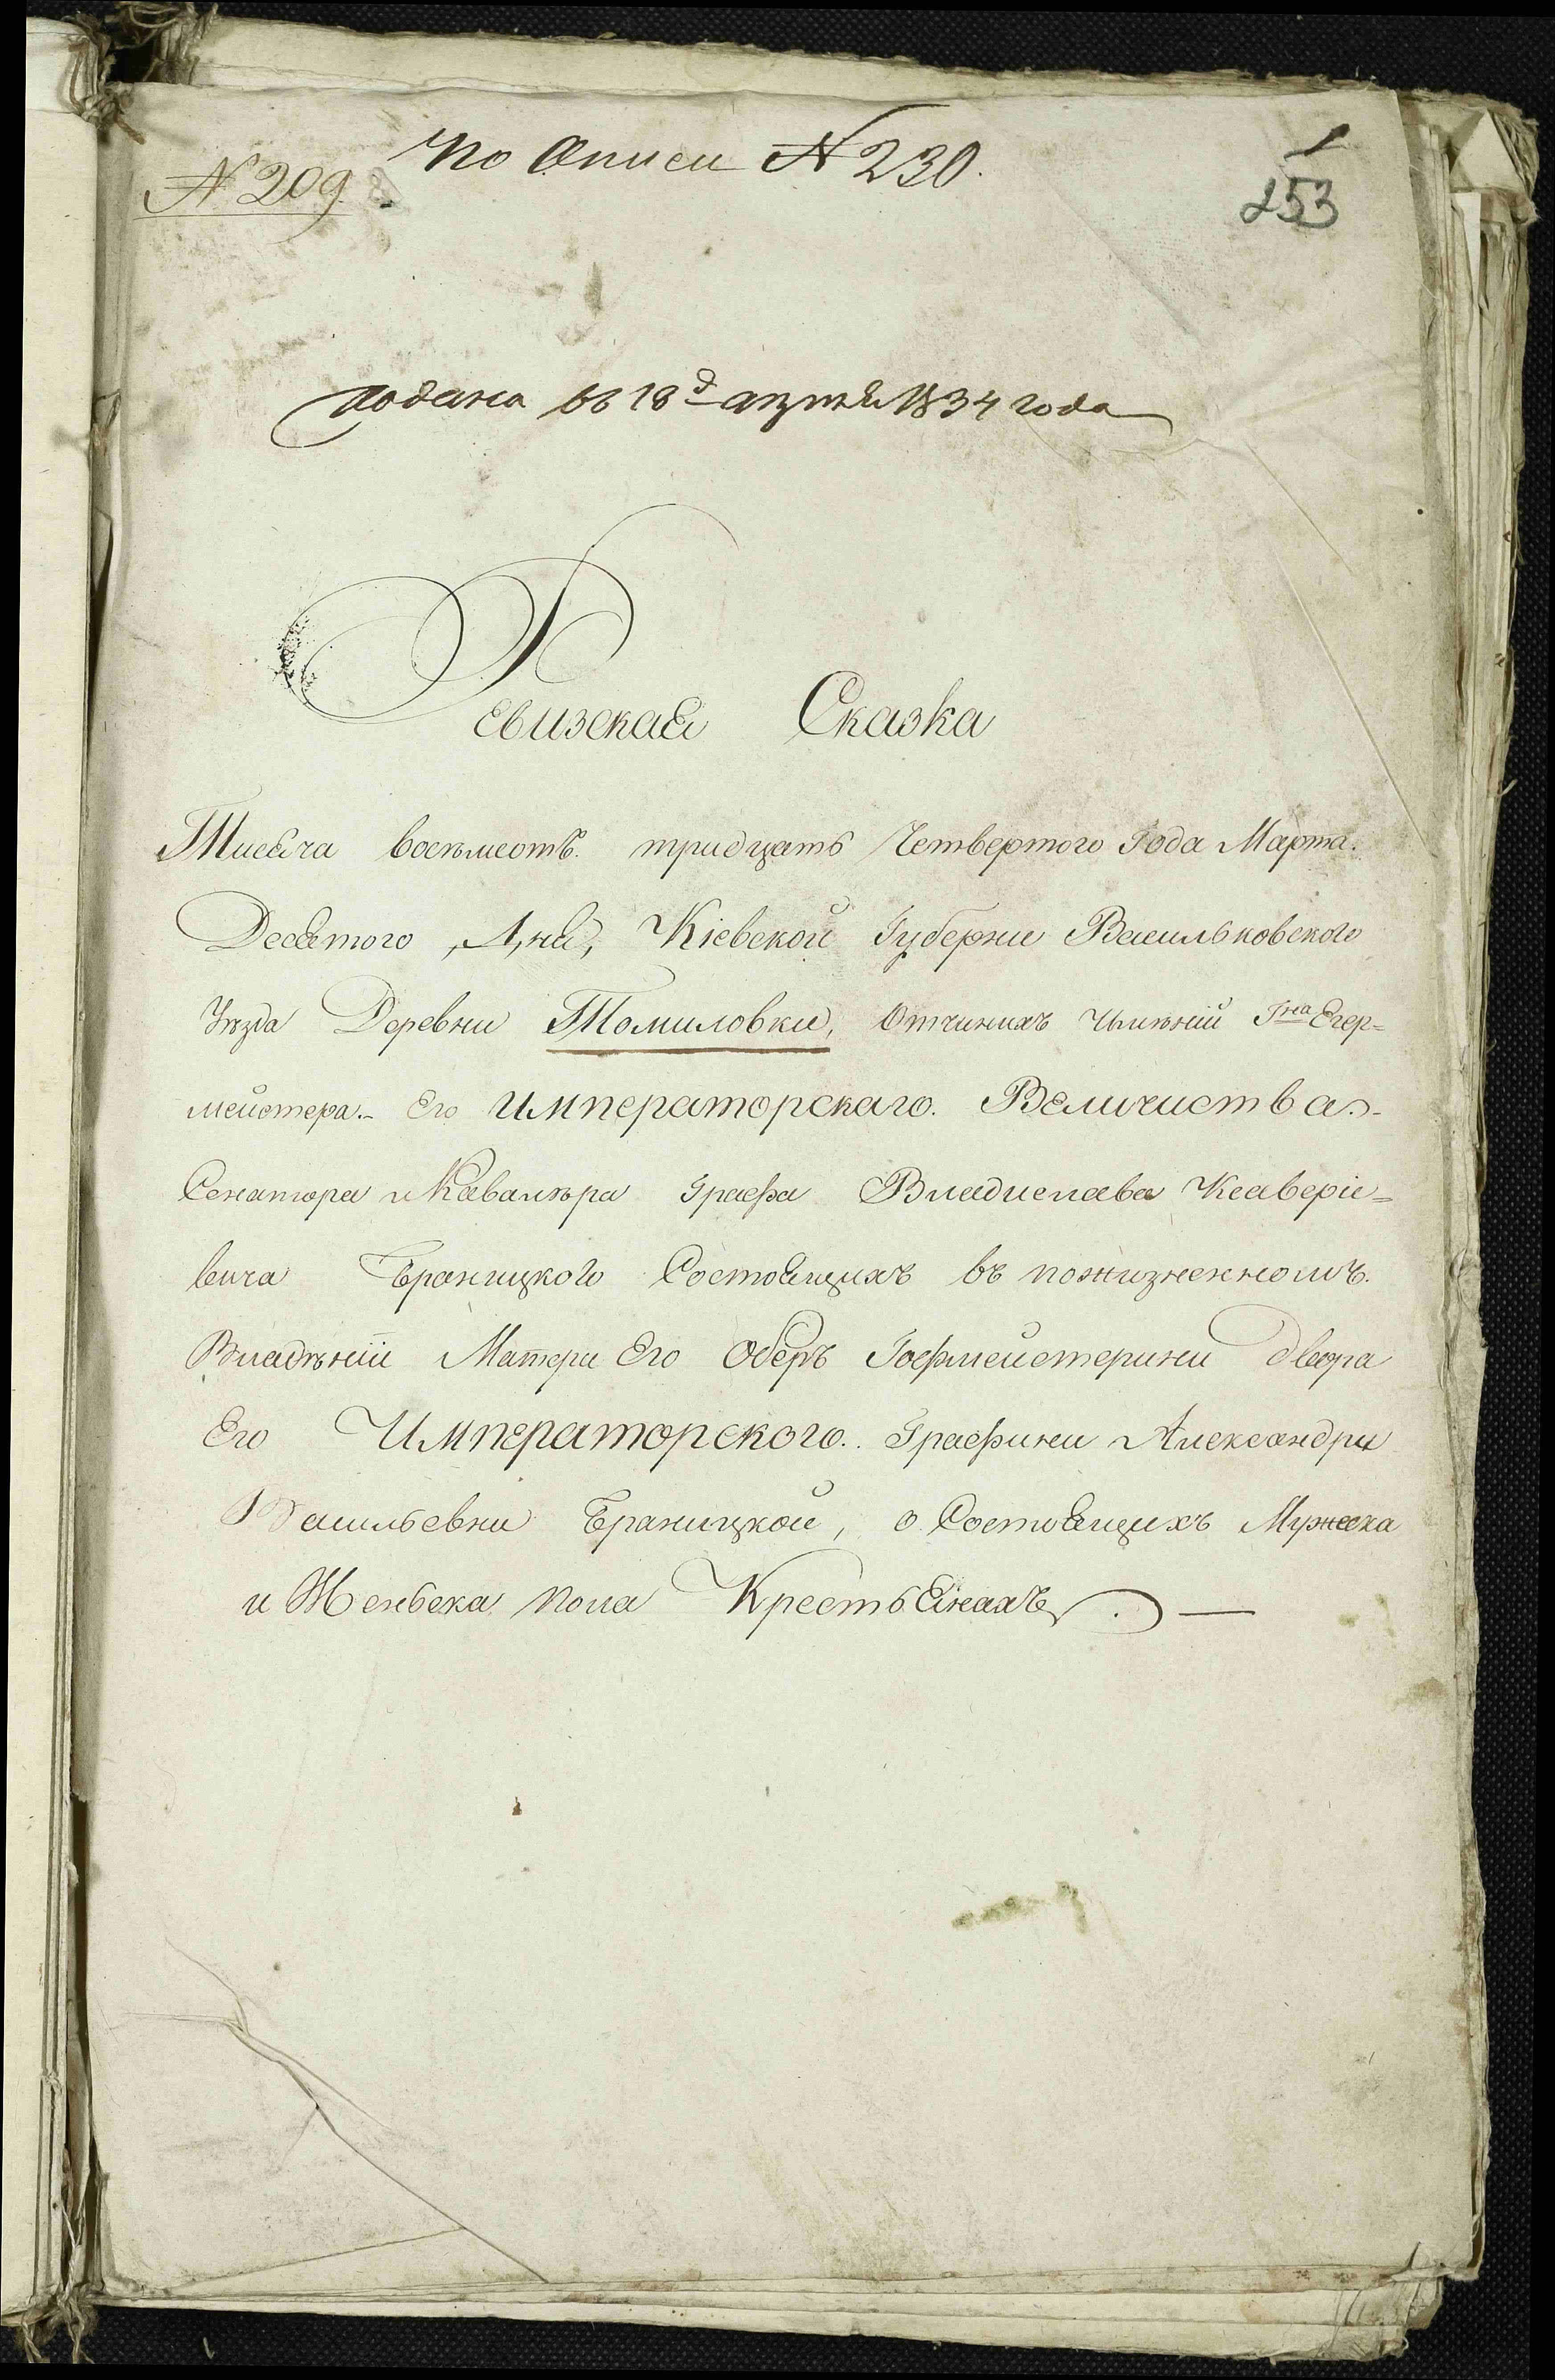 По Описи № 230.
№ 209.
1
253
подана въ 18 д апреля 1834 года
Ревизская Сказка
Тисяча восемьсотъ тридцать Четвертого Года Марта.
Десятого Дня, Кіевской Губернии Васильковского
Уѣзда Деревни Томиловки, Отчинихъ Имѣній Гна Егер=
мейстера. Его Императорскаго. Величиства.
Сенатора и Кавалѣра Графа Владислава Ксаверіе=
вича Браницкого Состоящихъ въ пожизненномъ.
Владѣніи Матери Его Оберъ Гофмейстерини Двора
Его Императорского. Графини Александри
Васильевни Браницкой, о Состоящихъ Мужеска
и Женьска пола Крестьянахъ. —